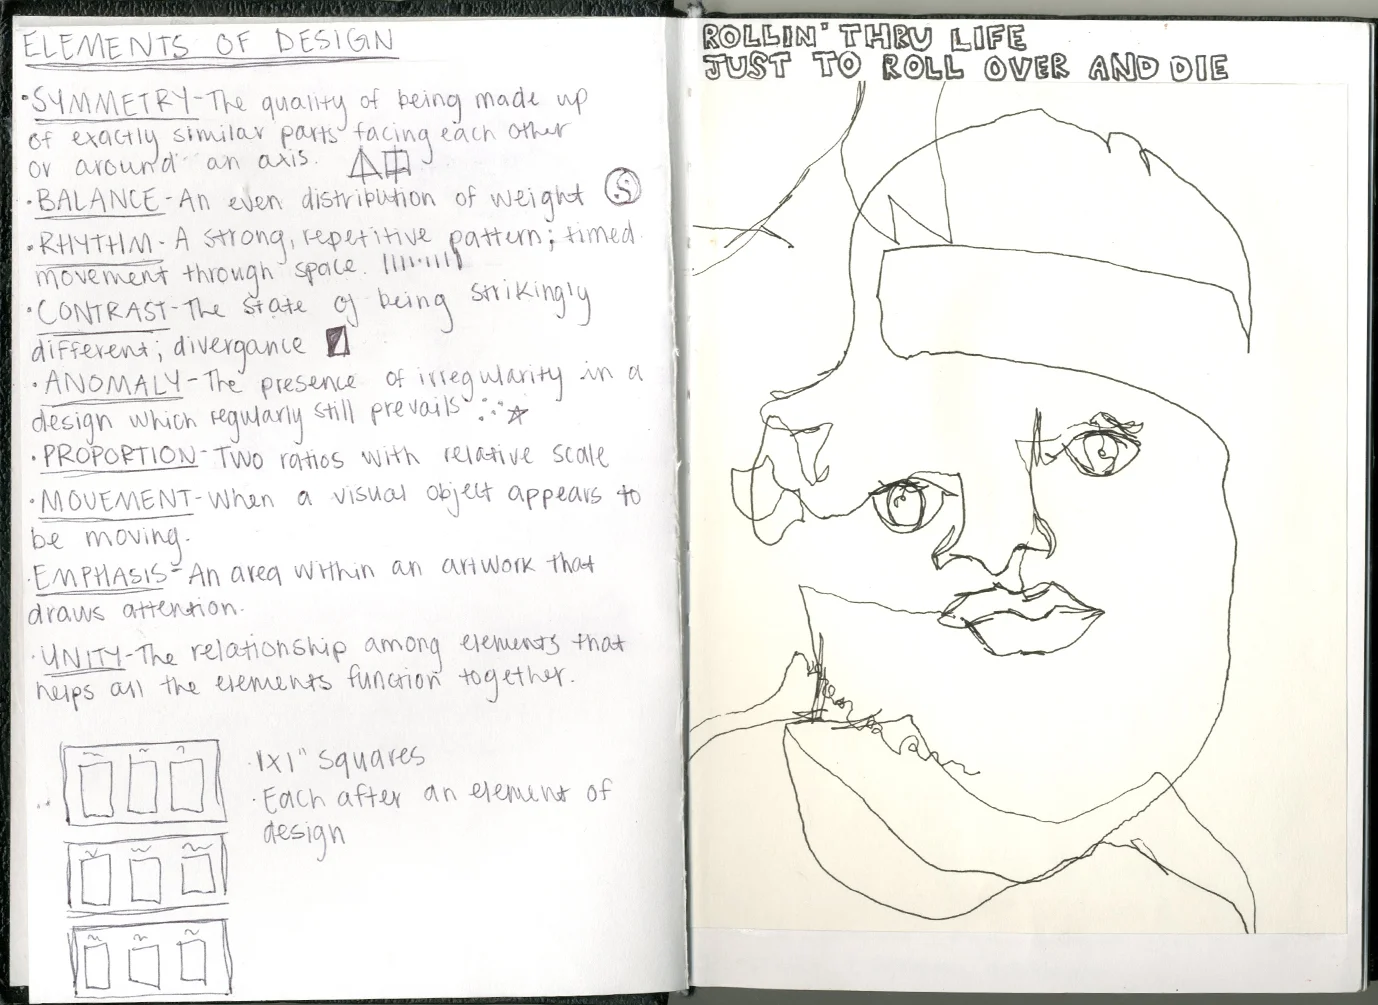 ELEMENTS OF DESIGN
·SYMMETRY-The quality of being made up
of exactly similar parts facing each other
or around an axis.
·BALANCE-An even distribution of weight
·RHYTHM-A strong, repetitive pattern; timed
movement through space.
·CONTRAST-The state of being strikingly
different; divergance
·ANOMALY-The presence of irregularity in a
design which regularly still prevails
·PROPORTION-Two ratios with relative scale
·MOVEMENT-When a visual object appears to
be moving.
·EMPHASIS-An area within an artwork that
draws attention.
·UNITY-The relationship among elements that
helps all the elements function together.
·1x1" squares
·Each after an element of
design
ROLLIN' THRU LIFE
JUST TO ROLL OVER AND DIE